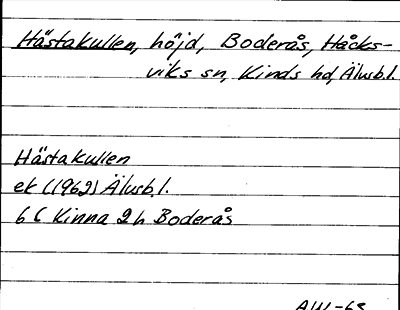 Hästakullen, höjd, Boderås, Hacks-
viks sn, Kinds hd, Älvsb.l.
Hästakullen
ek (1962) Älvsb.l.
6 C Kinna 2 h Boderås